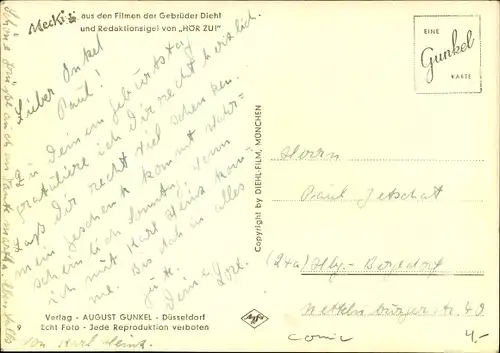 Mecki aus den Filmen der Gebrüder Diehl
und Redaktionsigel von „HÖR ZU!"
Lieber Onkel
Paul!
Zu Deinem Geburtstag
gratuliere ich Dir recht herzlich
Laß Dir recht viel schenken.
mein Geschenk kommt wahr-
scheinlich Sonntag, wenn
ich mit Karl Heinz kom-
me. Bis dahin alles
gute
Deine Lore.
von Karl Heinz
Schöne Grüße auch an Tante Martha
Verlag - AUGUST GUNKEL - Düsseldorf
Echt Foto - Jede Reproduktion verboten
9
Agfa
Copyright by DIEHL-FILM, MÜNCHEN
EINE
Gunkel
KARTE
Herrn
Paul Jetschat
(24a) Hbg.-Bergedorf
str. 40
comic
4,-